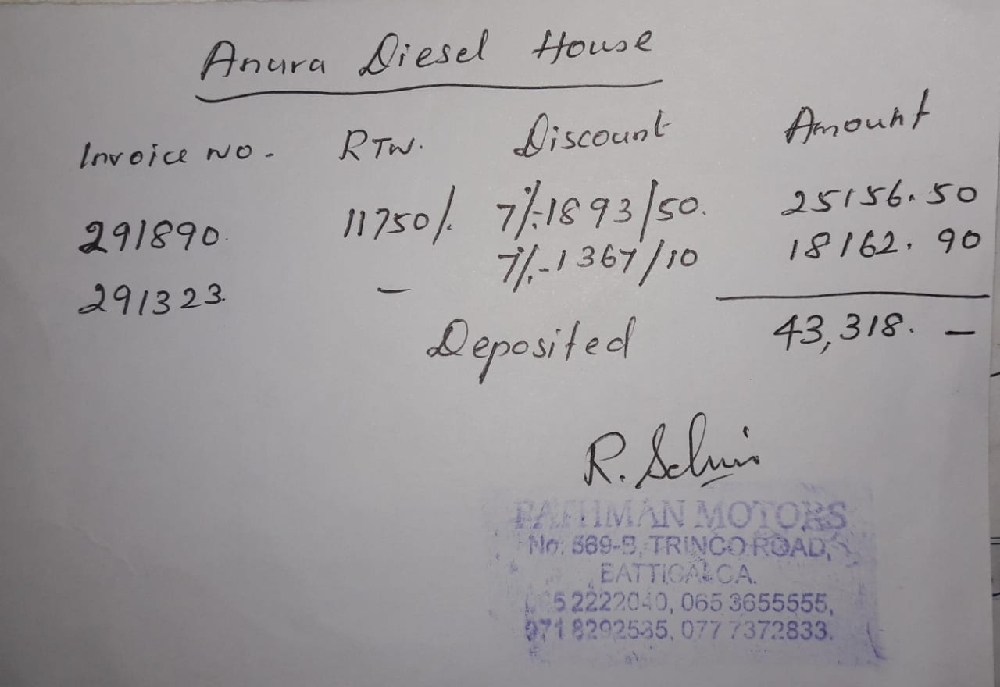 Anura Diesel House
Invoice No. RTN. Discount Amount
291890. 11750/. 7%-1893/50. 25156.50
7%-1367/10 18162.90
291323. —
Deposited 43,318. —
R.
MOTORS
No: 569-B, TRINCO ROAD,
BATTICALOA.
065 2222040, 065 3655555,
071 8292535, 077 7372833.